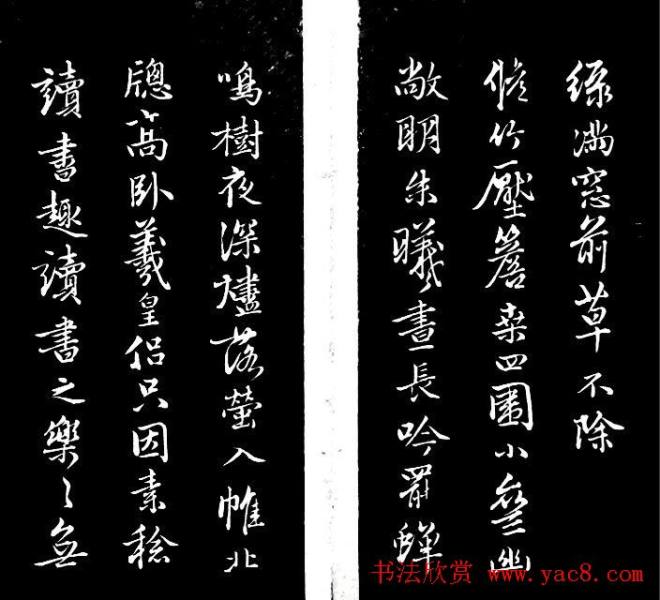 綠滿窓前草不除
脩竹壓簷桑四圍小齋幽
敞明朱曦晝長吟罷蟬
鳴樹夜深燼落螢入帷北
牕高臥羲皇侶只因素稔
讀書趣讀書之樂〻無
书法欣赏 www.yac8.com